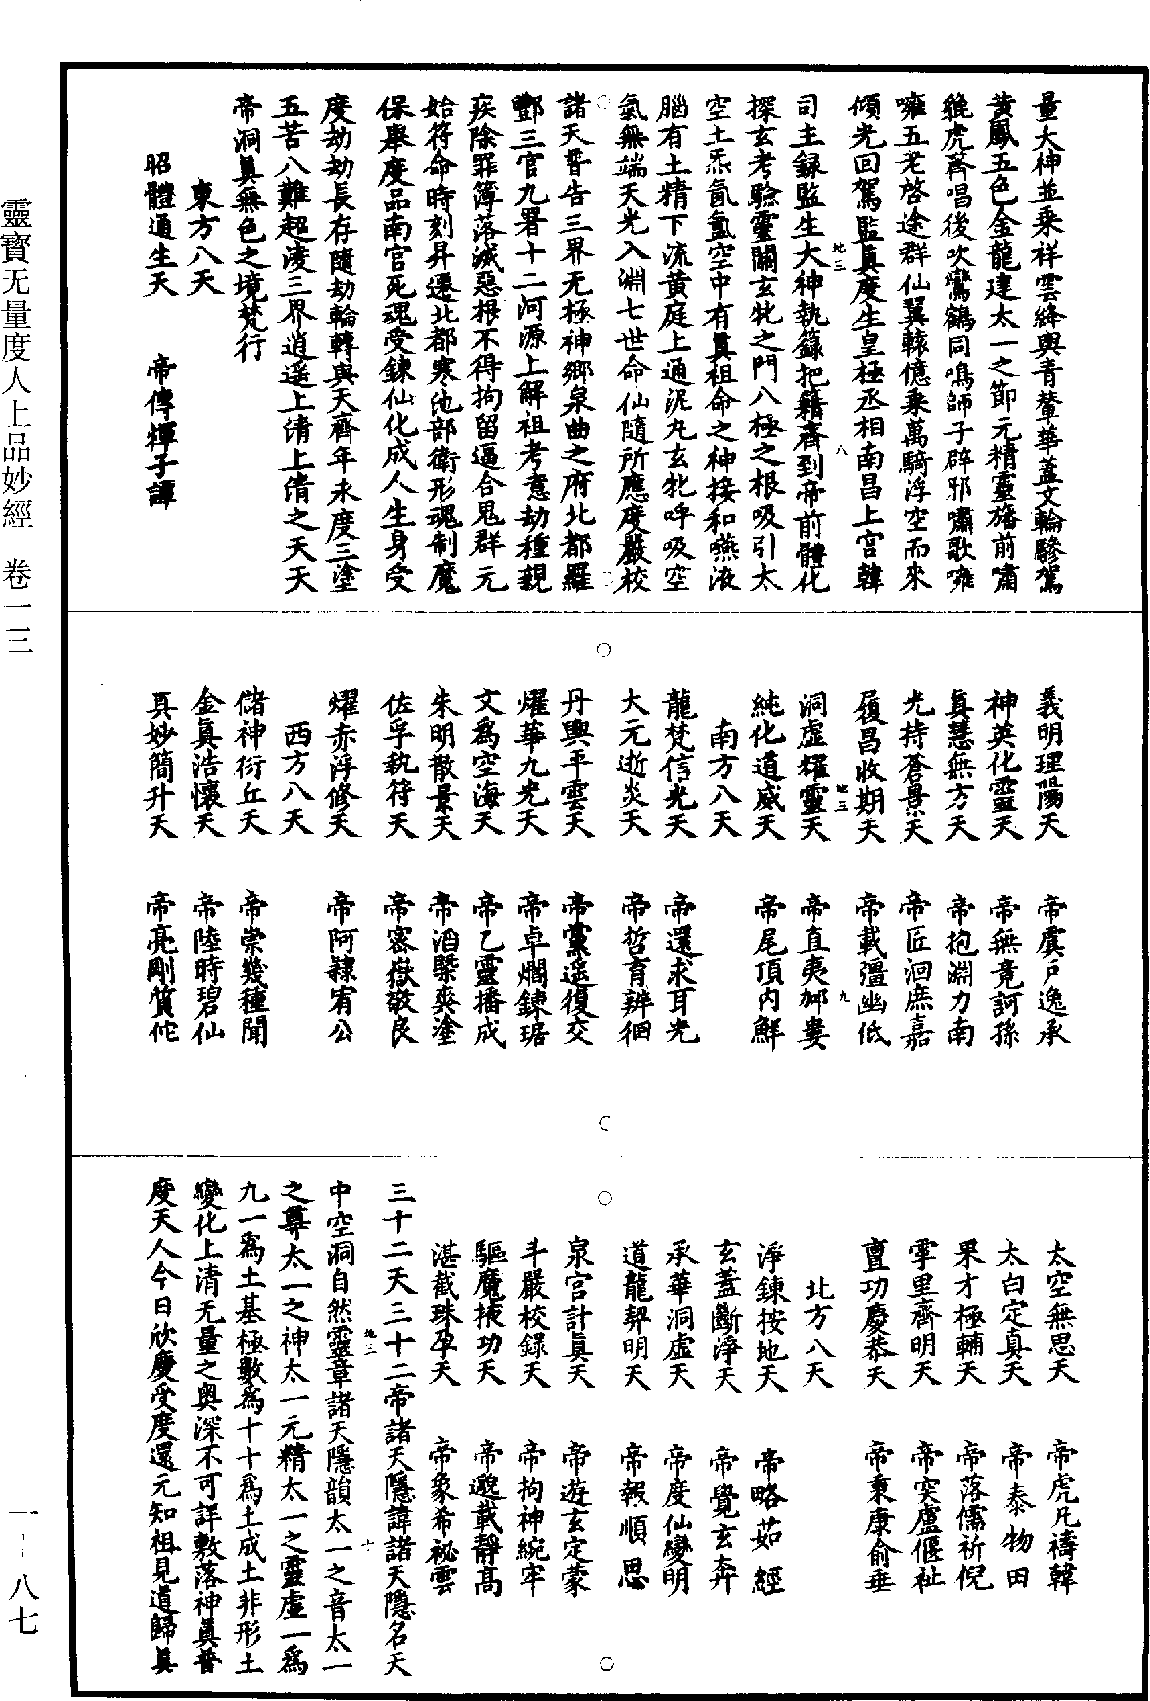 量大神並乘祥雲絳輿青輦華蓋文輪驂駕
黃鳳五色金龍建太一之節元精靈旛前嘯
雖虎齊唱後吹鸞鶴同鳴師子辟邪嘯歌嗈
嗈五老啓途群仙翼轅億乘萬騎浮空而來
傾光回駕監真度生皇極丞相南昌上宮韓
地三 八
司主録監生大神執籙把籍齊到帝前體化
探玄考驗靈關玄牝之門八極之根吸引太
空土炁氤氳空中有真祖命之神接和嚥液
腦有土精下流黃庭上通泥丸玄牝呼吸空
氣無端天光入淵七世命仙隨所應度嚴校
諸天普告三界无極神鄉泉曲之府北都羅
酆三官九署十二河源上解祖考意劫種親
疾除罪簿落滅惡根不得拘留逼合鬼群元
始符命時刻昇遷北都寒池部衛形魂制魔
保舉度品南宮死魂受鍊仙化成人生身受
度劫劫長存隨劫輪轉與天齊年永度三塗
五苦八難超凌三界逍遥上清上清之天天
帝洞真無色之境梵行
東方八天
昭體通生天 帝傳擇子譚
義明理陽天 帝虞戶逸承
神英化靈天 帝無竟訶孫
真慧無方天 帝抱淵力南
光持蒼景天 帝匠洄庶嘉
履昌收期天 帝載溫幽低
地三 九
洞虛耀靈天 帝直夷婁
純化道威天 帝尾頂内鮮
南方八天
龍梵信光天 帝還求耳光
大元逝炎天 帝哲育辨徊
丹輿平雲天 帝黨遥復交
燿華九光天 帝卓爛鍊琚
文為空海天 帝乙靈播成
朱明散景天 帝滔槩爽塗
佐孚執符天 帝審嶽敬良
燿赤浮修天 帝阿隸宥公
西方八天
儲神衍丘天 帝崇幾種聞
金真浩懷天 帝陸時碧仙
真妙簡升天 帝亮剛質佗
太空無思天 帝虎凡禱韓
太白定真天 帝泰物田
果才極輔天 帝落儒祈倪
雯里齊明天 帝突盧偃祉
亶功慶恭天 帝秉康俞垂
北方八天
淨鍊按地天 帝略茹經
玄蓋斷淨天 帝覺玄奔
承華洞虛天 帝度仙變明
道龍羿明天 帝報順思
泉宮計真天 帝遊玄定蒙
斗嚴校録天 帝拘神綩牢
驅魔掖功天 帝邈載靜高
湛截珠孕天 帝象希祕雲
三十二天三十二帝諸天隱諱諸天隱名天
地三 十
中空洞自然靈章諸天隱韻太一之音太一
之尊太一之神太一元精太一之靈虛一爲
九一爲土基極數爲十十爲土成土非形土
變化上清无量之奥深不可詳敷落神真普
度天人今日欣慶受度還元知祖見道歸真
靈寶无量度人上品妙經 卷一三
一－八七